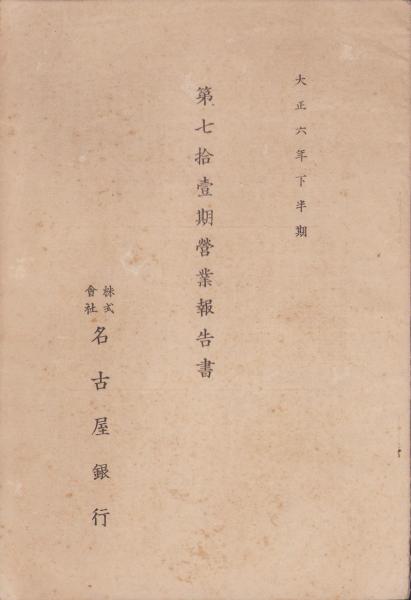 大正六年下半期
第七拾壹期營業報告書
株式會社名古屋銀行